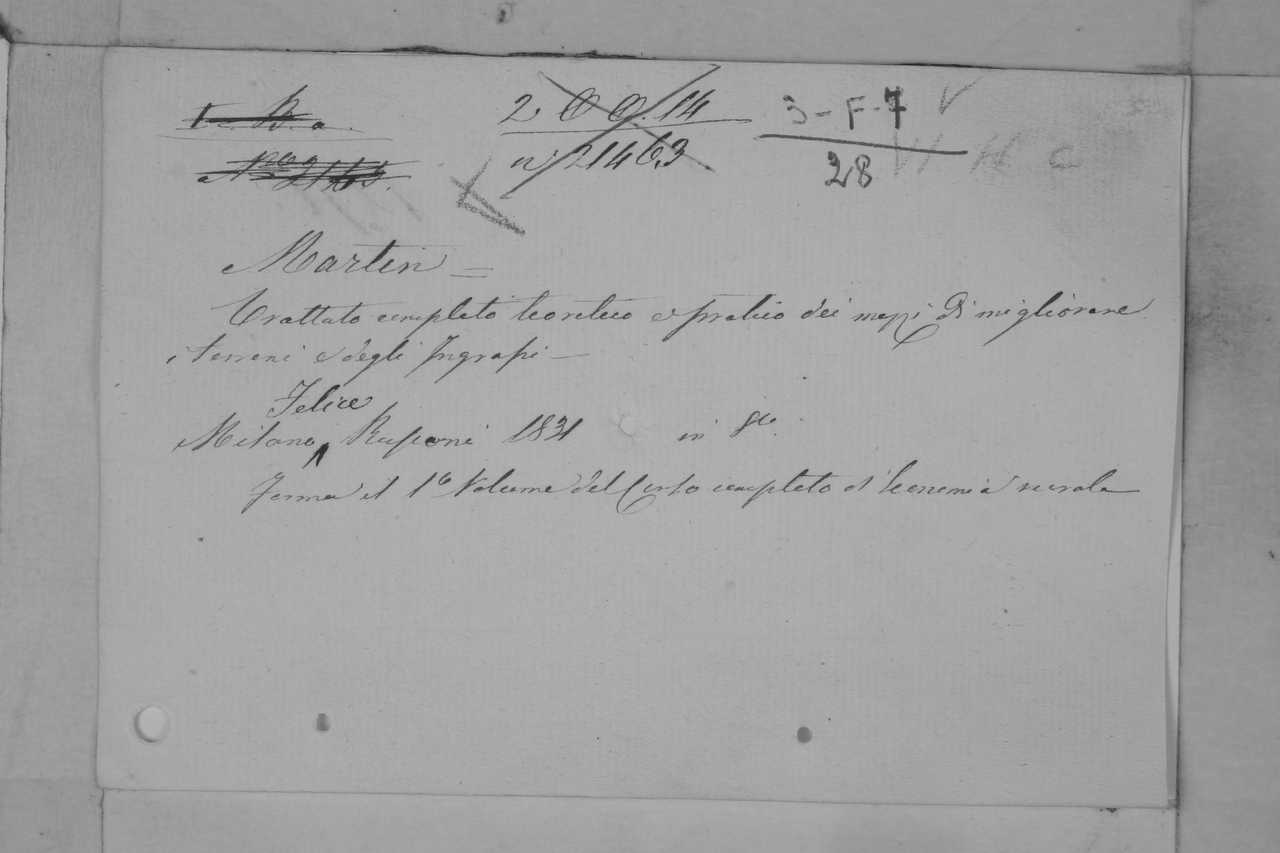 2 O O. 14
n° 21463
3-F-7
28
Martin =
Trattato completo teoretico e pratico dei mezzi di migliorare
i terreni e degli Ingrassi —
Felice
Milano, Rusconi 1831 in 8vo
forma il 1° Volume del Corso completo d'Economia rurale